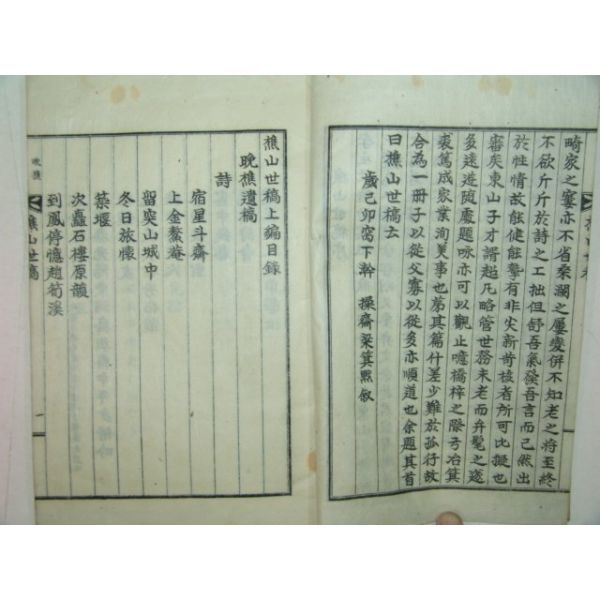 畸家之窶亦不省桑瀾之屢變併不知老之將至終
不欲斤斤於詩之工拙但舒吾氣發吾言而已然出
於性情故能健能摯有非尖新苛棱者所可比擬也
審矣東山子才谞趫凡略管世務未老而弁髦之遂
多遠遊隨處題咏亦可以觀止噫橋梓之際亏冶箕
裘篤成家業洵美事也苐其篇什差少難於孤行故
合為一冊子以從父寡以從多亦順道也余題其首
曰樵山世稿云
歲己卯窩下澣 操齋梁箕默敘
樵山世稿上編目錄
晚樵遺稿
詩
宿星斗齋
上金鰲庵
留突山城中
冬日旅懷
築堰
次矗石樓原韻
到鳳停憶趙荀溪
晚樵
樵山世稿
一